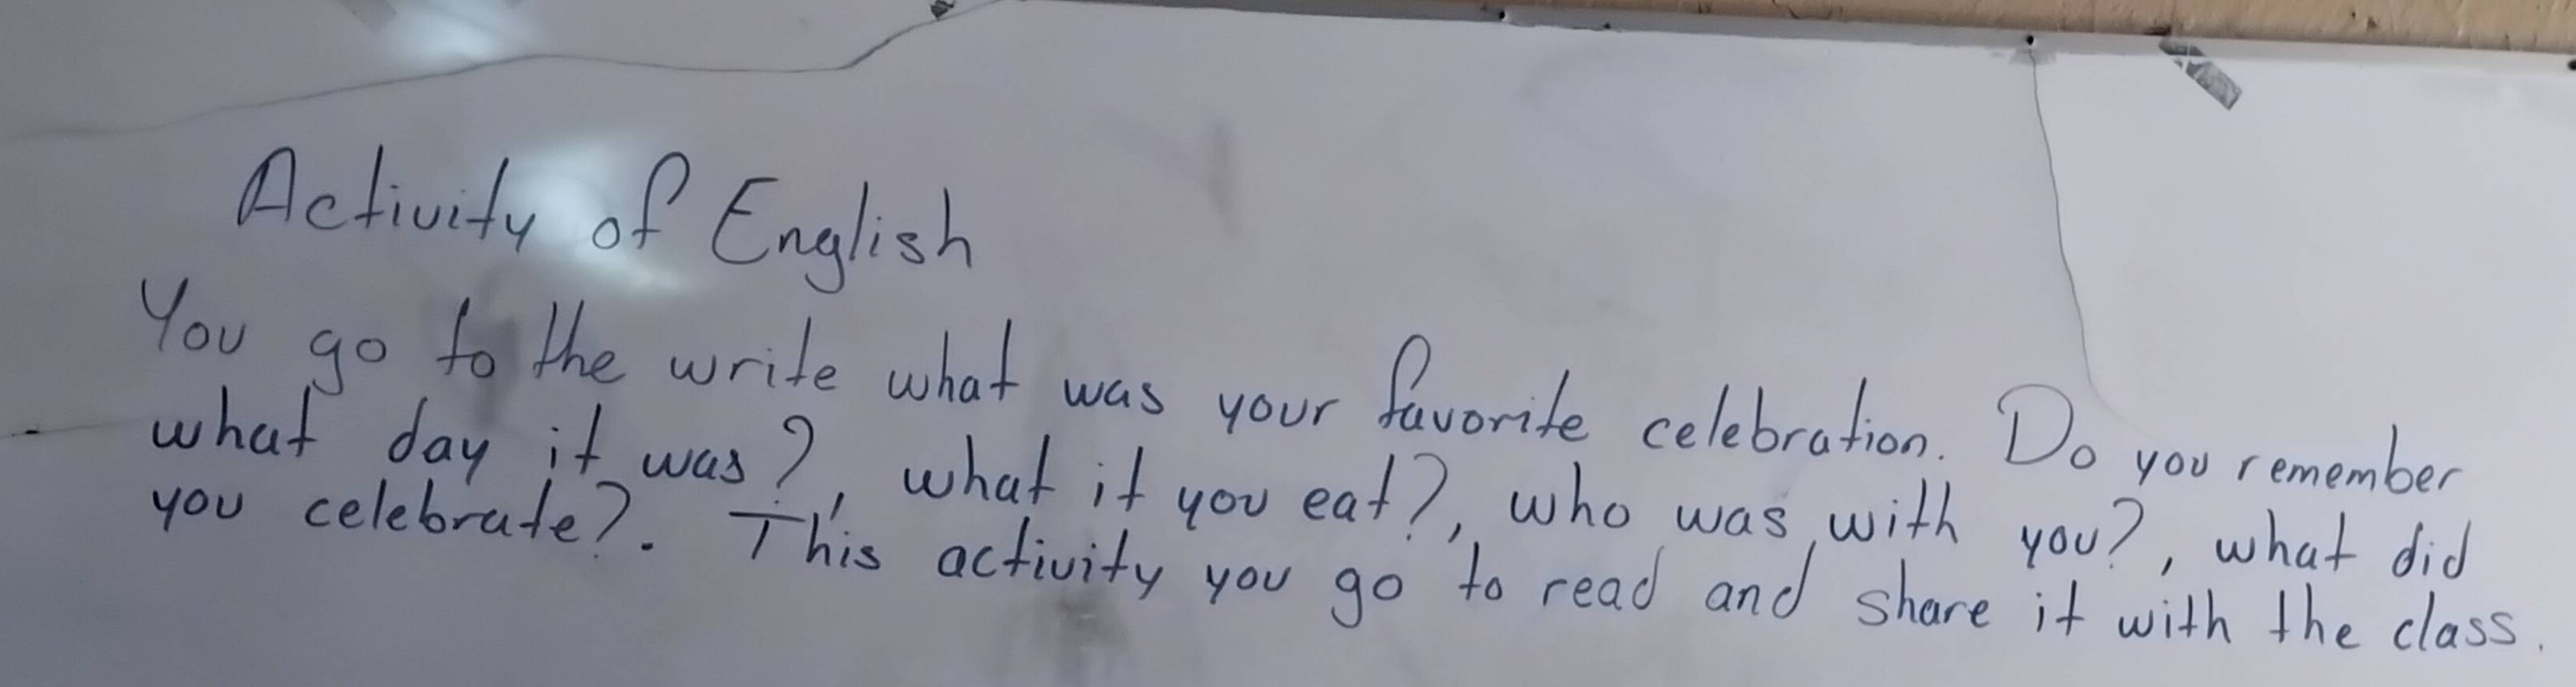 Activity of English
You go to the write what was your favorite celebration. Do you remember
what day it was?, what it you eat?, who was with you?, what did
you celebrate?. This activity you go to read and share it with the class.